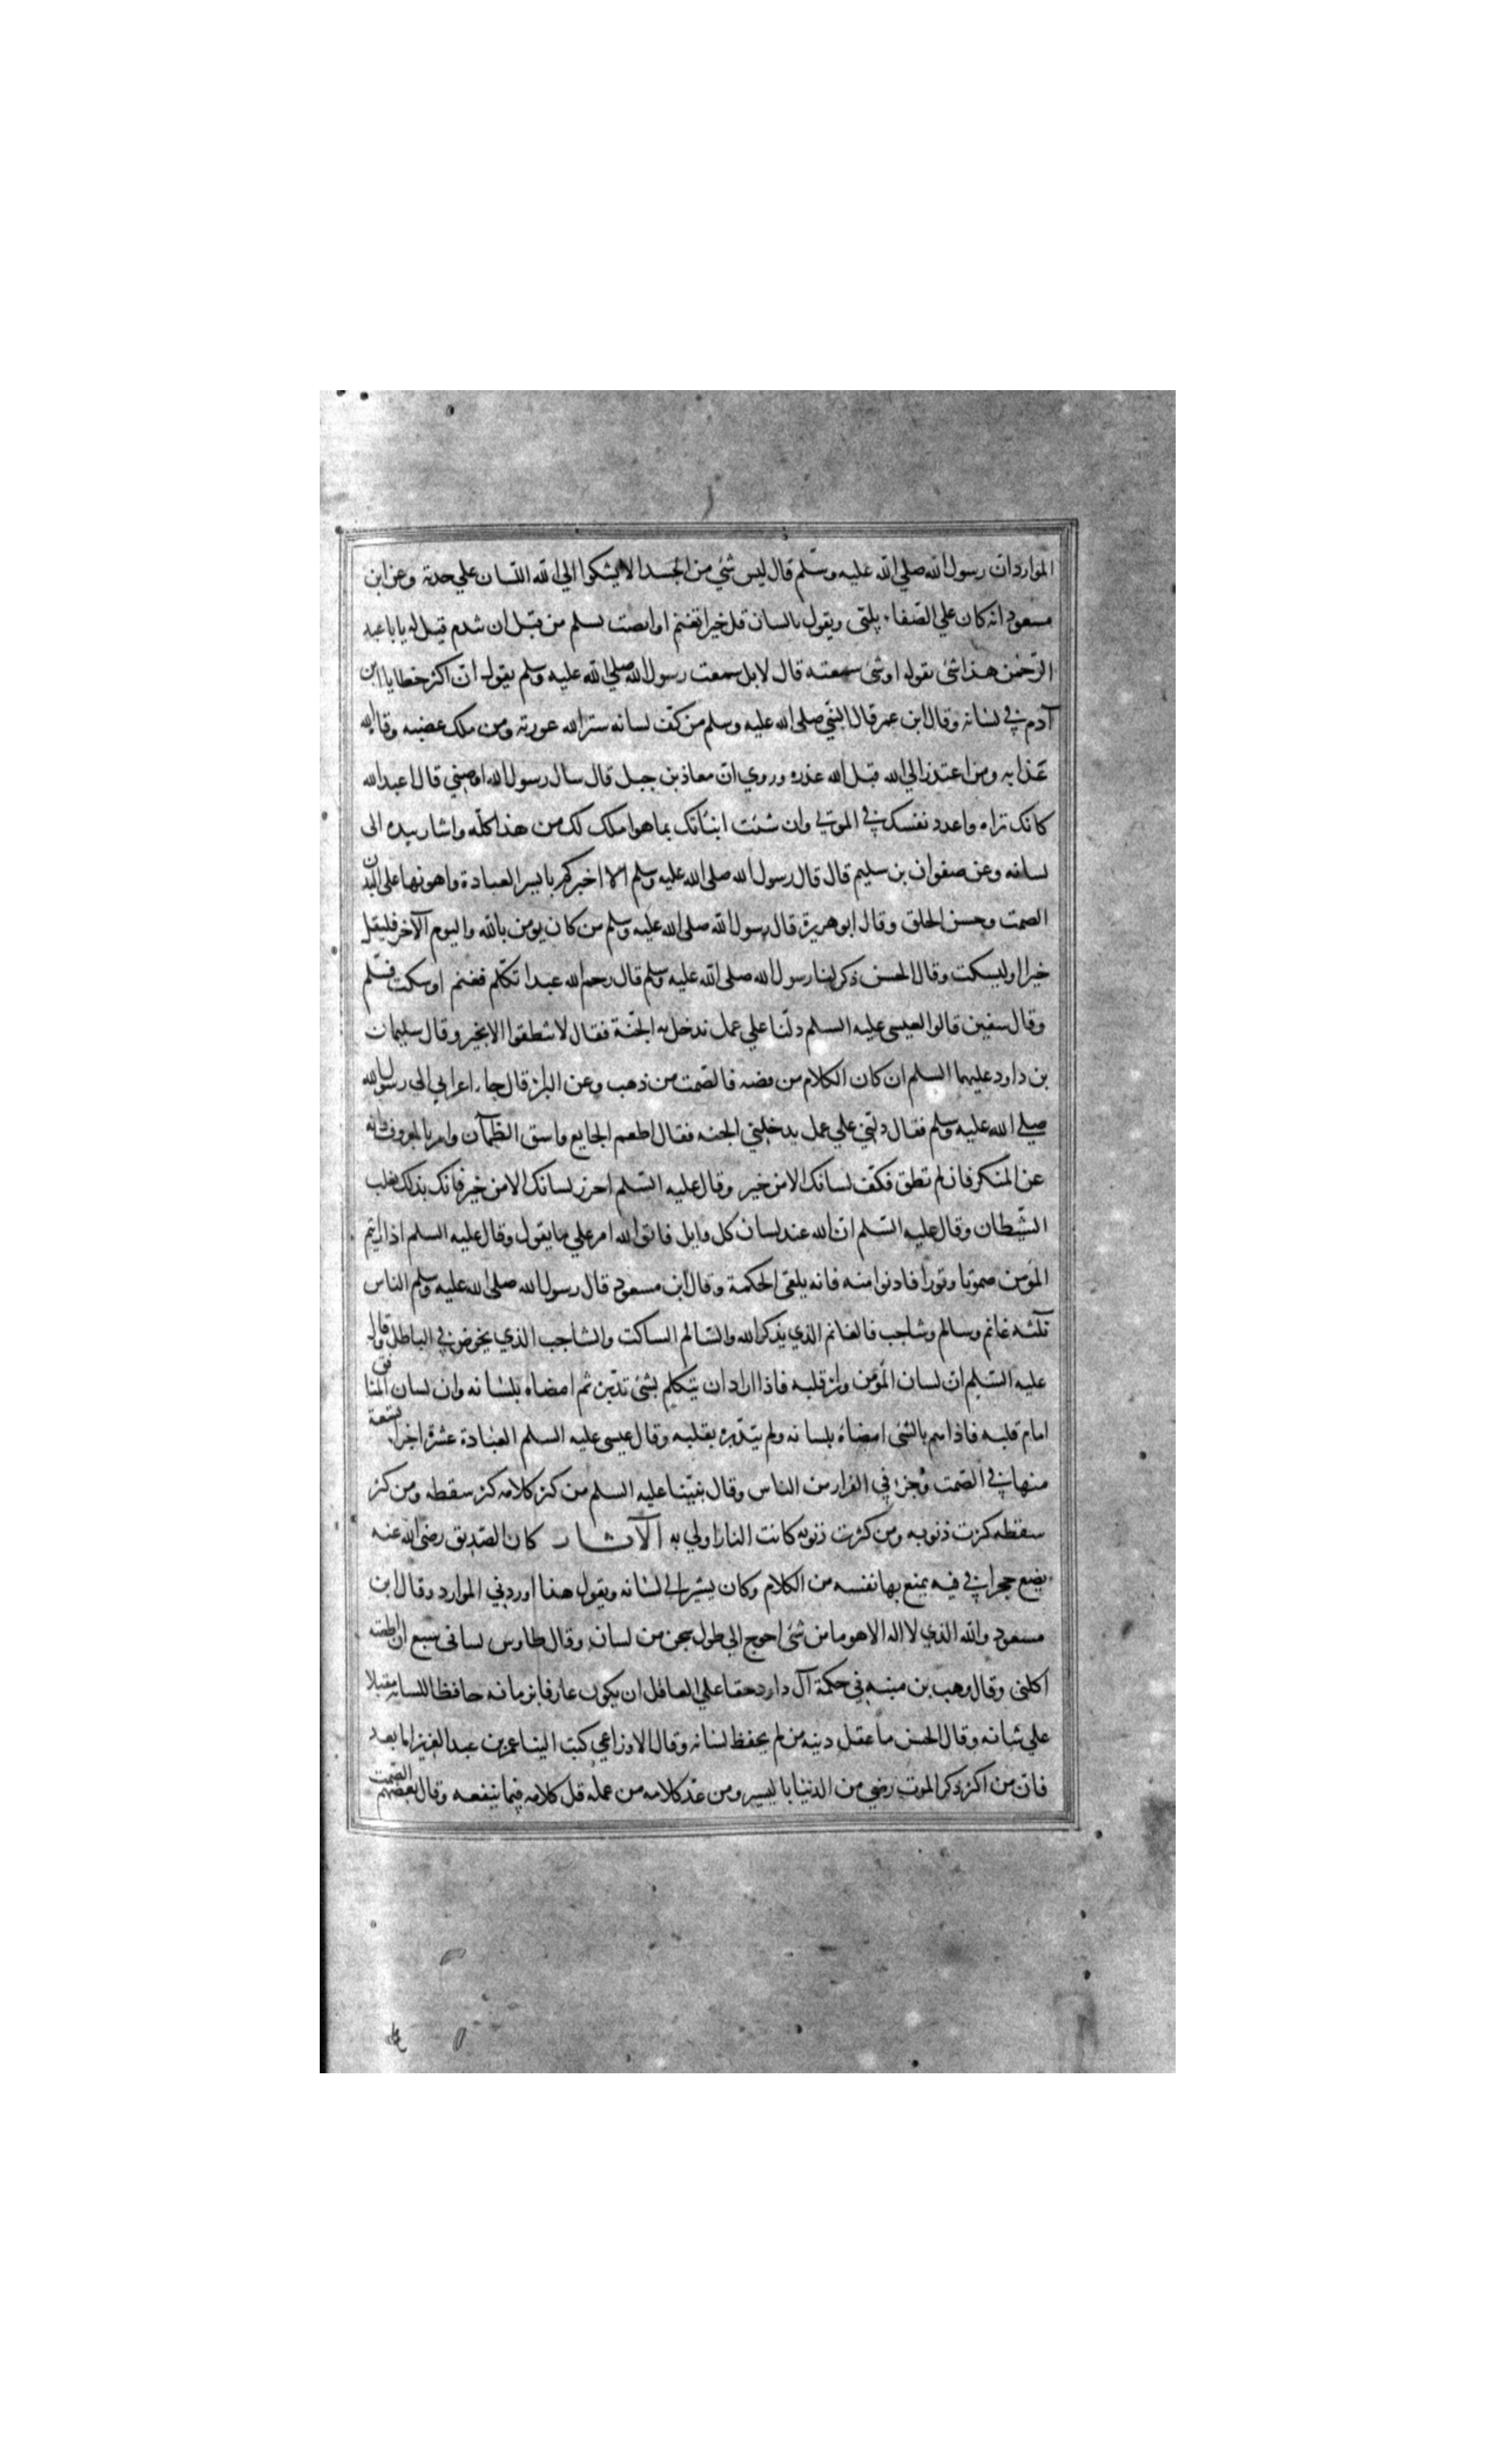 الموارد ان رسول الله صلي الله عليه وسلم قال ليس شئ من الجسد الا يشكوا الي الله اللسان علي حدته وعن ابن
مسعود انه كان علي الصفا يلبى ويقول يا لسان قل خيرا تغنم او انصت تسلم من قبل ان تندم قيل له يا با عبد
الرحمن هذا شئ تقوله او شئ سمعته قال لا بل سمعت رسول الله صلي الله عليه وسلم يقول ان اكثر خطايا ابن
آدم في لسانه وقال ابن عمر قال النبي صلى الله عليه وسلم من كف لسانه ستر الله عورته ومن ملك غضبه وقاه الله
عذابه ومن اعتذر الي الله قبل الله عذره وروي ان معاذ بن جبل قال سال رسول الله اوصني قال اعبد الله
كانك تراه واعدد نفسك في الموتي وان شئت انبئاتك بما هو املك لك من هذا كله واشار بيده الى
لسانه وعن صفوان بن سليم قال قال رسول الله صلى الله عليه وسلم الا اخبركم بايسر العبادة واهونها على البدن
الصمت وحسن الخلق وقال ابو هريرة قال رسول الله صلى الله عليه وسلم من كان يومن بالله واليوم الآخر فليقل
خيرا او ليسكت وقال الحسن ذكر لنا رسول الله صلى الله عليه وسلم قال رحم الله عبدا تكلم فغنم او سكت فسلم
وقال سفين قالوا لعيسى عليه السلم دلنا علي عمل ندخل به الجنة فقال لا تنطقوا الا بخير وقال سليمان
بن داود عليهما السلم ان كان الكلام من فضه فالصمت من ذهب وعن البراز قال جاء اعرابي الى رسول الله
صلي الله عليه وسلم فقال دلني علي عمل يدخلني الجنه فقال اطعم الجايع واسق الظمآن وامر بالمعروف وانه
عن المنكر فان لم تطق فكف لسانك الا من خير وقال عليه السلم احرز لسانك الا من خير فانك بذلك تغلب
الشيطان وقال عليه السلم ان الله عند لسان كل قايل فاتق الله امر علي ما يقول وقال عليه السلم اذا رايتم
المومن صموتا وقورا فادنوا منه فانه يلقى الحكمة وقال ابن مسعود قال رسول الله صلى الله عليه وسلم الناس
ثلثه غانم وسالم وشاجب فالغانم الذي يذكر الله والسالم الساكت والشاجب الذي يخوض في الباطل وقال
عليه السلم ان لسان المؤمن وراء قلبه فاذا اراد ان يتكلم بشئ تدبره ثم امضاه بلسانه وان لسان المنافق
امام قلبه فاذا هم بالشئ امضاه بلسانه ولم يتدبره بقلبه وقال عيسى عليه السلم العبادة عشرة اجزا تسعة
منها في الصمت وجزء في الفرار من الناس وقال نبينا عليه السلم من كثر كلامه كثر سقطه ومن كثر
سقطه كثرت ذنوبه ومن كثرت ذنوبه كانت النار اولي به الآثار كان الصديق رضى الله عنه
يضع حجرا في فيه يمنع بها نفسه من الكلام وكان يشير الى لسانه ويقول هذا اوردني الموارد وقال ابن
مسعود والله الذي لا اله الا هو ما من شئ احوج الي طول سجن من لسان وقال طاوس لسانى سبع ان اطلقته
اكلنى وقال وهب بن منبه في حكمة آل داود حقا علي العاقل ان يكون عارفا بزمانه حافظا للسانه مقبلا
علي شانه وقال الحسن ما عقل دينه من لم يحفظ لسانه وقال الاوزاعي كتب الينا عمر بن عبد العزيز اما بعد
فان من اكثر ذكر الموت رضي من الدنيا باليسير ومن عد كلامه من عمله قل كلامه فيما ينفعه وقال بعضهم الصمت